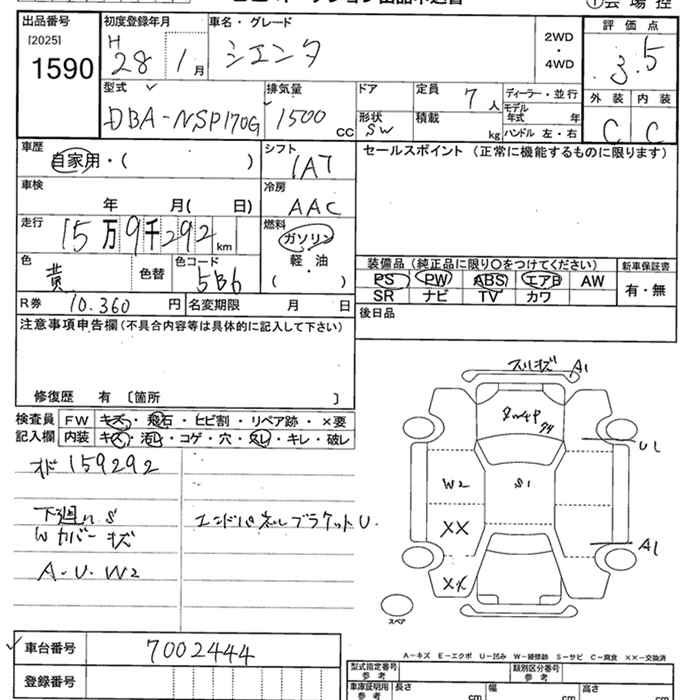 ①会場控
出品番号 初度登録年月 車名・グレード 評価点
[2025] H 28 1月 シエンタ 2WD・4WD 3.5
1590
型式 排気量 ドア 定員 7人 ディーラー・並行 外装 内装
DBA-NSP170G 1500cc 形状 SW 積載 kg モデル年式 年 ハンドル 左・右 C C
車歴 シフト セールスポイント (正常に機能するものに限ります)
自家用・( ) IAT
車検 冷房
年 月( 日) AAC
走行 燃料
15万9千292km ガソリン
色 色替 色コード 軽・油 装備品 (純正品に限り○をつけてください) 新車保証書
黄 5B6 ( ) PS PW ABS エアB AW 有・無
R券 10,360円 名変期限 月 日 SR ナビ TV カワ
注意事項申告欄(不具合内容等は具体的に記入して下さい) 後日品
修復歴 有 〔箇所 〕
検査員 FW キズ・飛石・ヒビ割・リペア跡・×要
記入欄 内装 キズ・汚レ・コゲ・穴・欠レ・キレ・破レ
159292
下廻りS エンドパネルブラケットU.
Wカバーキズ
A・U・W2
スリキズ A1
U1
W2 S1
XX A1
XX
スペア
A-キズ E-エクボ U-凹み W-補修跡 S-サビ C-腐食 ××-交換済
車台番号 7002444
登録番号
型式指定番号 参考 類別区分番号 参考
車庫証明用 参考 長さ cm 幅 cm 高さ cm